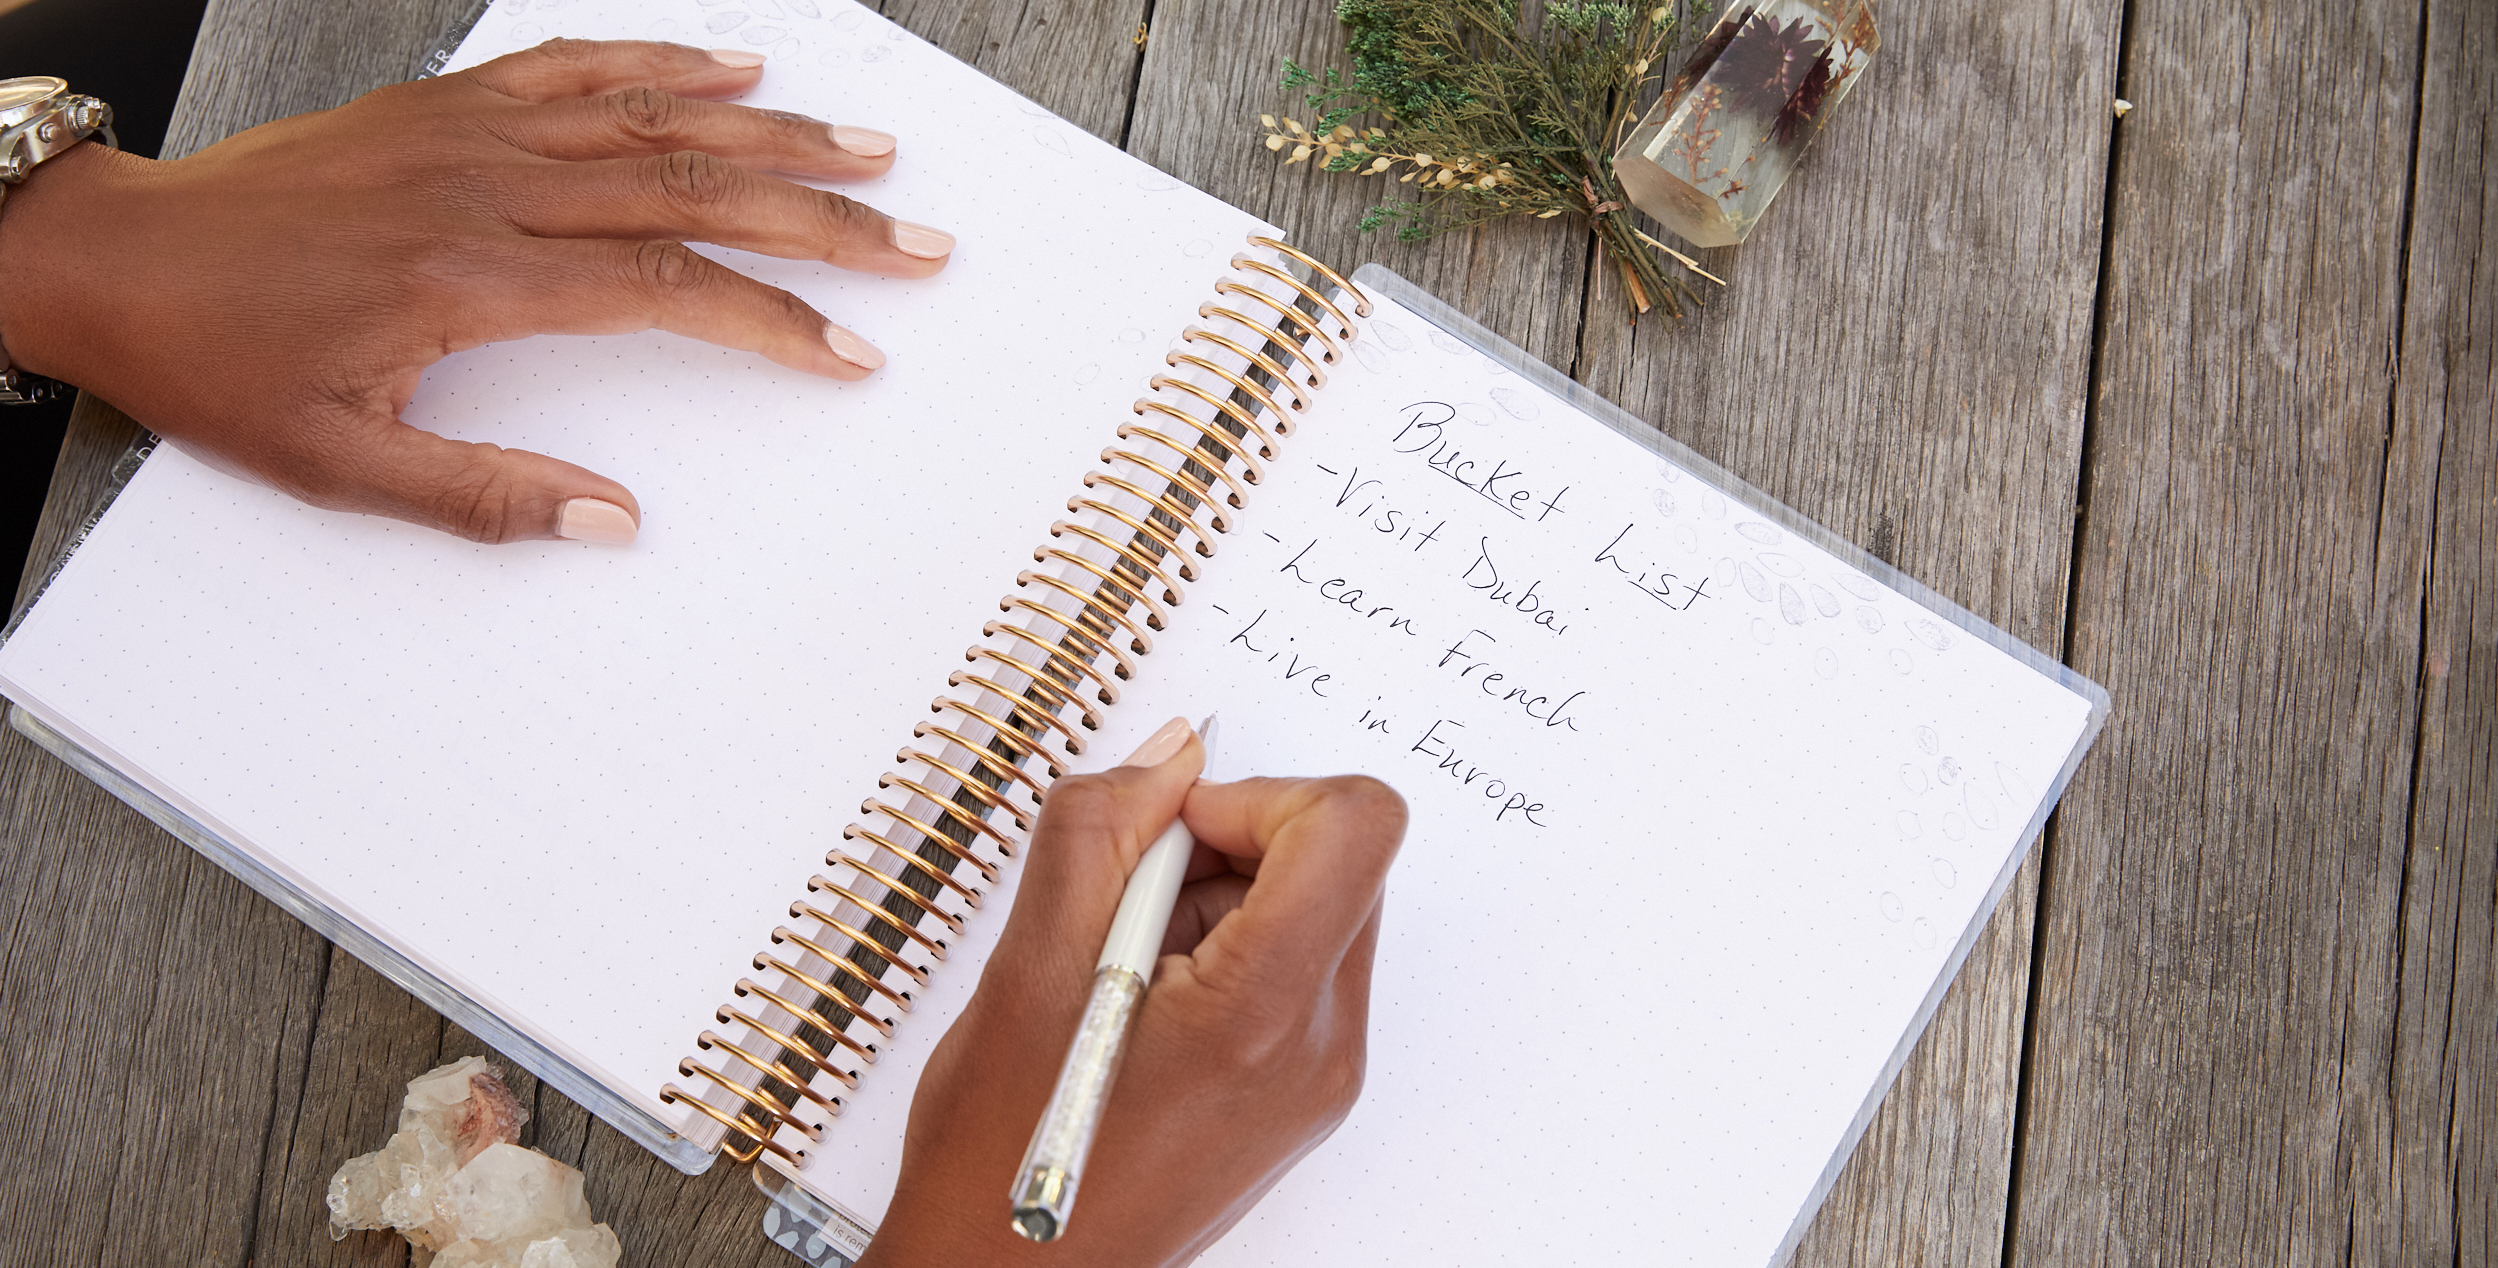 Bucket List
-Visit Dubai
-Learn French
-Live in Europe